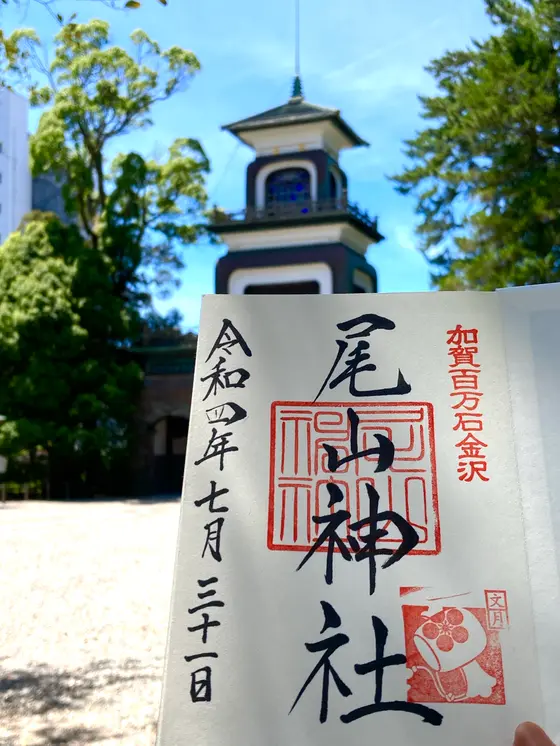 加賀百万石金沢
尾山神社
文月
令和四年七月三十一日